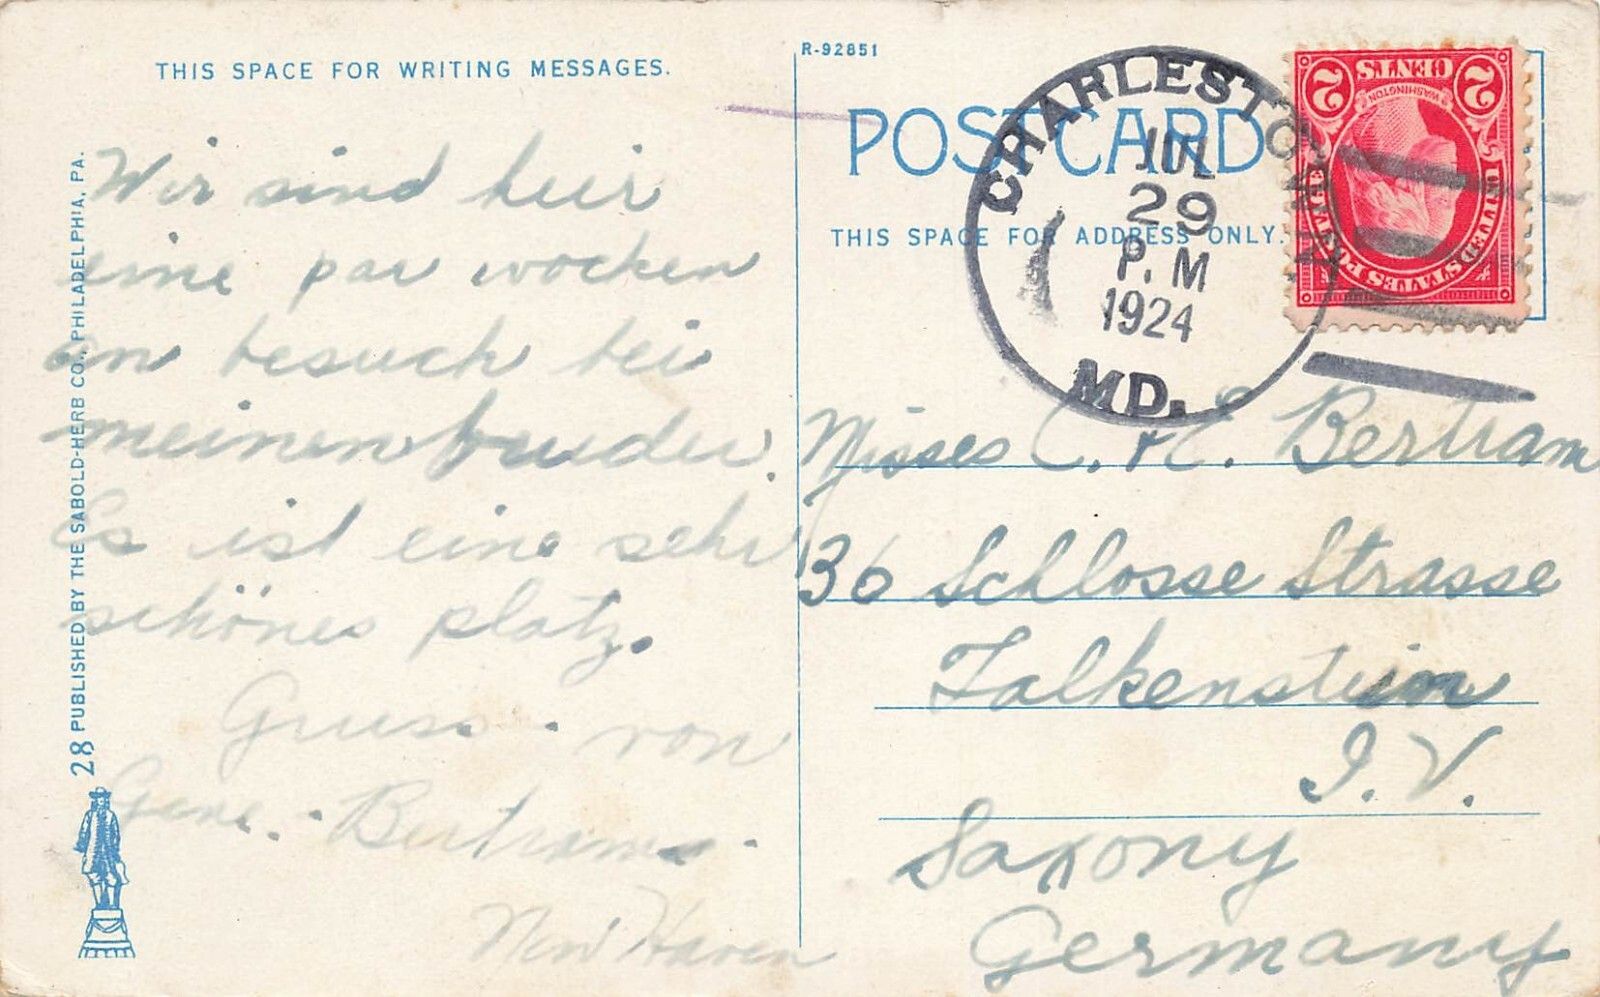 THIS SPACE FOR WRITING MESSAGES.
Wir sind heir
eine par wochen
on besuch bei
meinen bruder.
Es ist eine sehr
schönes platz.
Gruss. von
Gene. Bertram.
New Haven
28 PUBLISHED BY THE SABOLD-HERB CO., PHILADELPHIA, PA.
R-92851
POST CARD
THIS SPACE FOR ADDRESS ONLY.
CHARLESTOWN
JUL
29
P.M
1924
MD.
UNITED STATES POSTAGE
WASHINGTON
2 CENTS 2
Misses C. & E. Bertram
36 Schlosse Strasse
Falkenstein
I. V.
Saxony
Germany